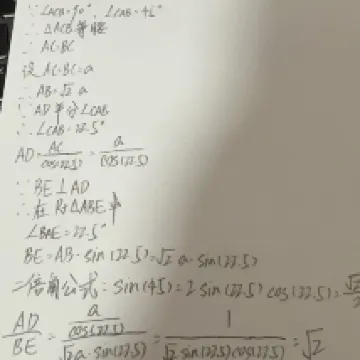 ∵∠ACB=90°, ∠CAB=45°
∴△ACB等腰
∴AC=BC
设AC=BC=a
∴AB=√2 a
∵AD平分∠CAB
∴∠CAB=22.5°
AD=AC/cos(22.5)=a/cos(22.5)
∵BE⊥AD
∴在Rt△ABE中
∠BAE=22.5°
BE=AB·sin(22.5)=√2 a·sin(22.5)
二倍角公式:sin(45)=2sin(22.5)cos(22.5)=√2/2
AD/BE=(a/cos(22.5))/(√2 a·sin(22.5))=1/(√2 sin(22.5)cos(22.5))=√2